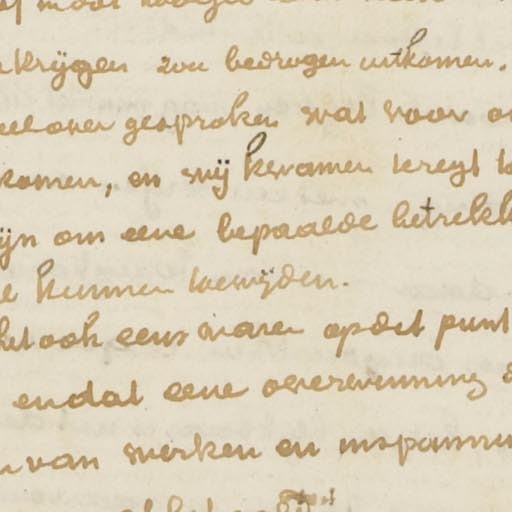 krijgen zou bedrogen uitkomen.
over gesproken wat voor
komen, en wij kwamen tereyt
om eene bepaalde betrekk
kunnen toewijden.
het ook eens waren op dit punt
en dat eene overwinning
van werken en inspannin